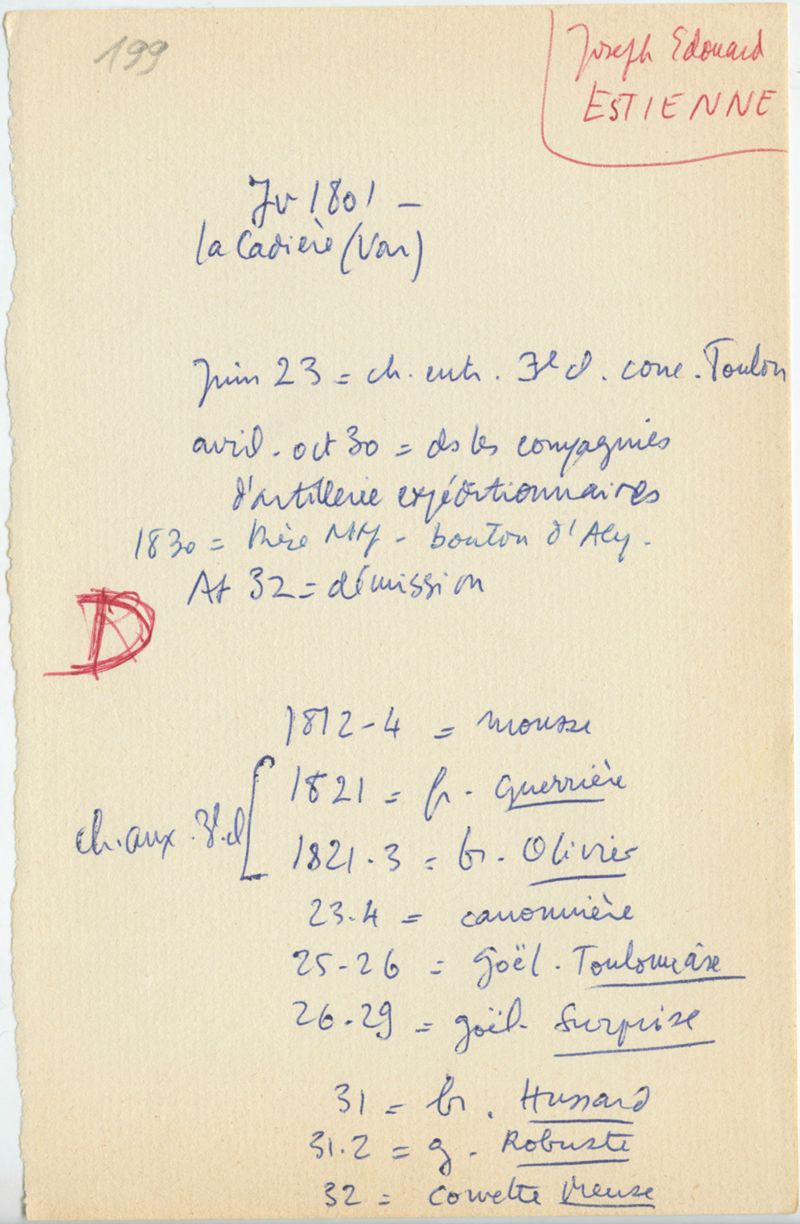 199
Joseph Edouard
ESTIENNE
Jv 1801 -
la Cadière (Var)
Juin 23 = ch. entr. 3e cl. conc. Toulon
avril - oct 30 = ds les compagnies
d'artillerie expéditionnaires
1830 = - bouton d'Aly.
At 32 = démission
D
1812-4 = mousse
1821 = fr. Guerrière
ch. aux. 3e cl
1821.3 = br. Olivier
23.4 = canonnière
25-26 = goël. Toulonnaise
26-29 = goël. Surprise
31 = br. Hussard
31.2 = g. Robuste
32 = corvette